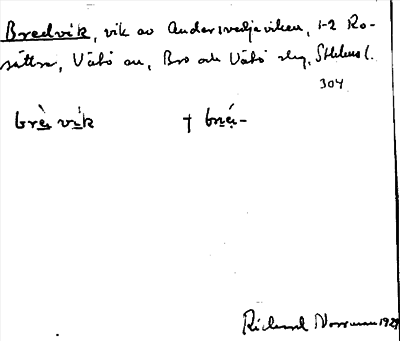 Bredvik, vik av Andersvedjaviken, 1-2 Ro-
sättra, Vätö sn, Bro och Vätö slg, Sthlms l.
304
brè vìk † brè̤-
Richard Norrman 1929